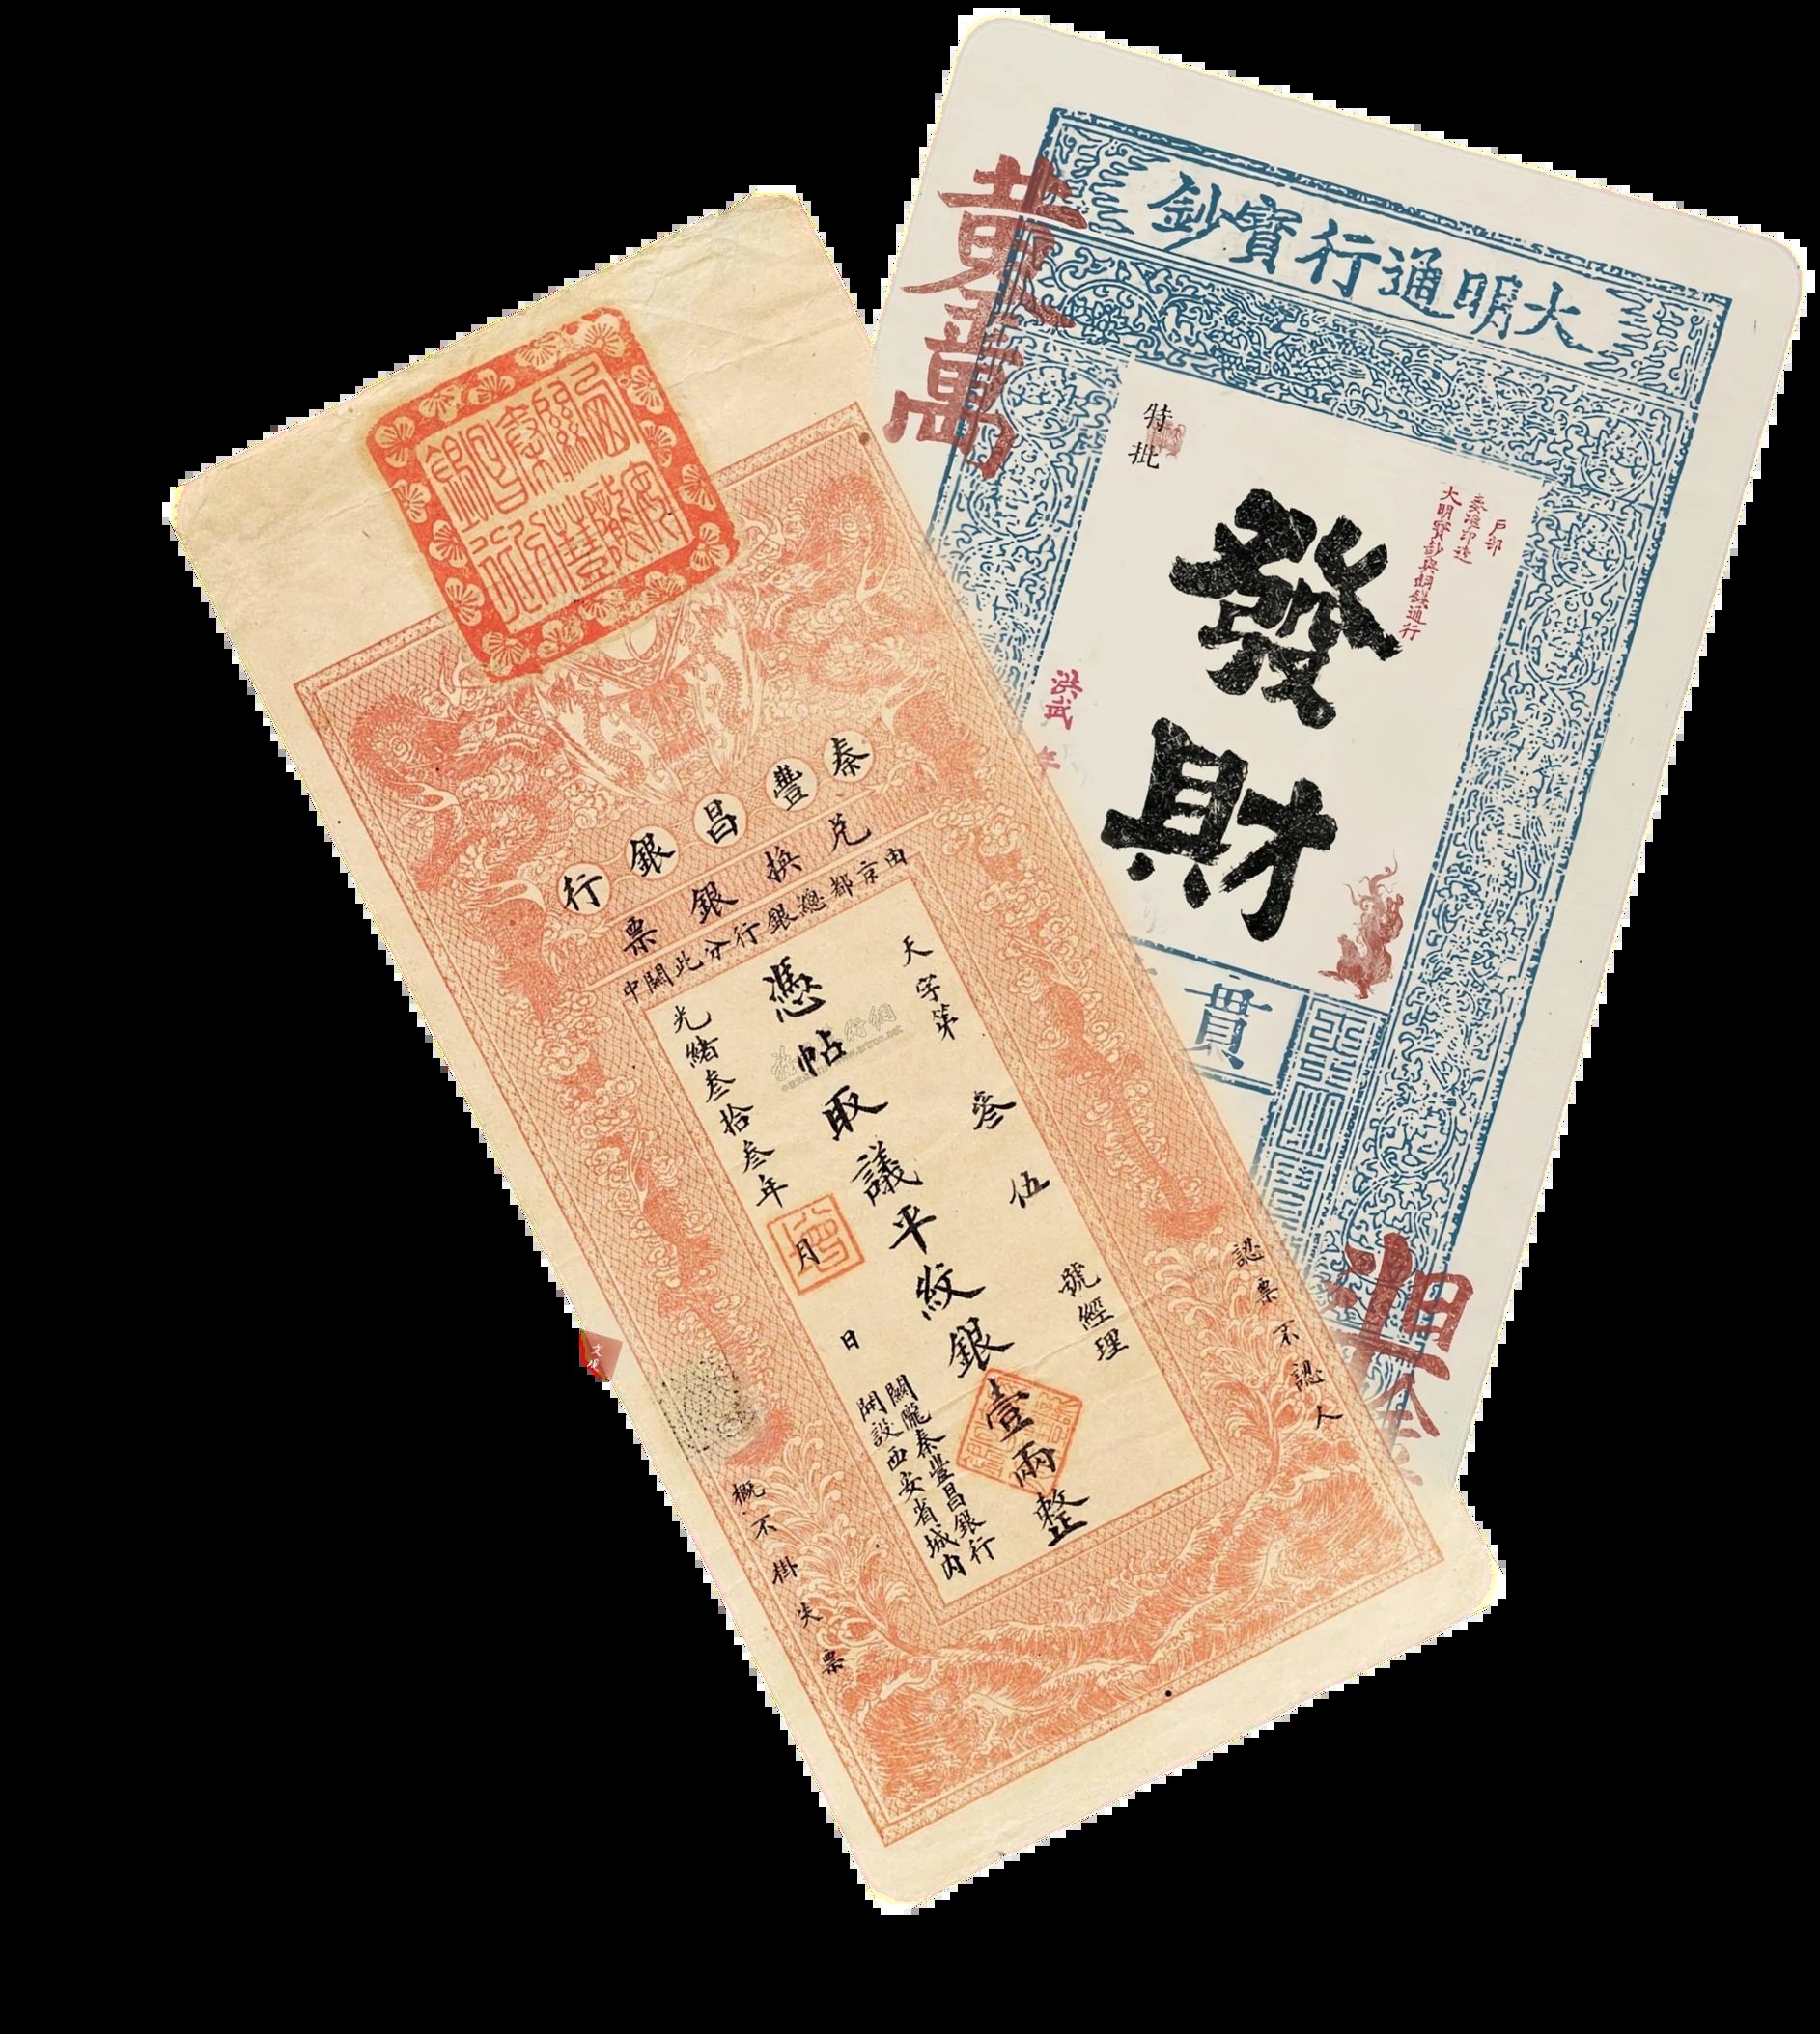 大明通行寶鈔
黃金萬
特批
發財
戶部
奏准印造
大明寶鈔與銅錢通行
洪武
年
貫
秦豐昌銀行
兌換銀票
由京都總銀行分此關中
天字第 叁伍 號經理
憑帖取議平紋銀壹兩整
光緒叁拾叁年 月 日
關隴秦豐昌銀行
開設西安省城內
認票不認人
概不掛失票